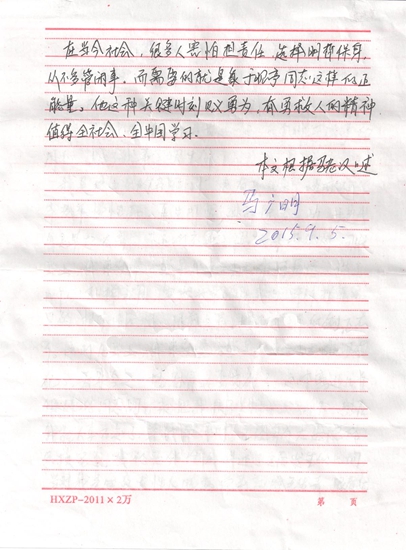 在当今社会，很多人害怕担责任，选择明哲保身，
从不多管闲事，而需要的就是象于现亭同志这样的正
能量。他这种关键时刻见义勇为，奋勇救人的精神
值得全社会、全中国学习。
本文根据 口述
马广明
2015.9.5.
HXZP-2011×2万 第 页